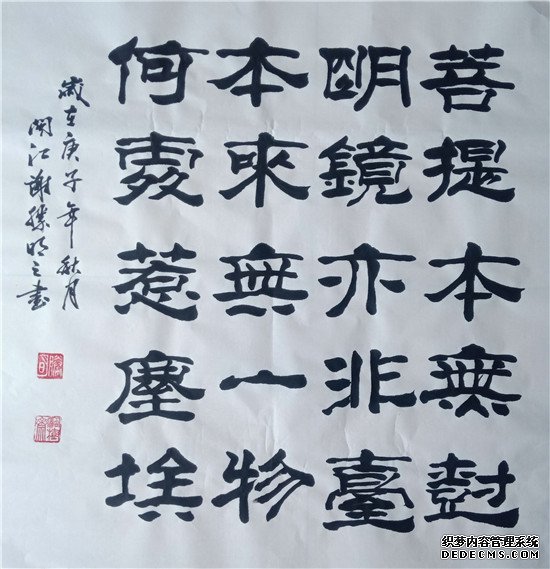 菩提本無樹
明鏡亦非臺
本來無一物
何處惹塵埃
歲在庚子年秋月
開江謝勝明之書
织梦内容管理系统
DEDECMS.COM